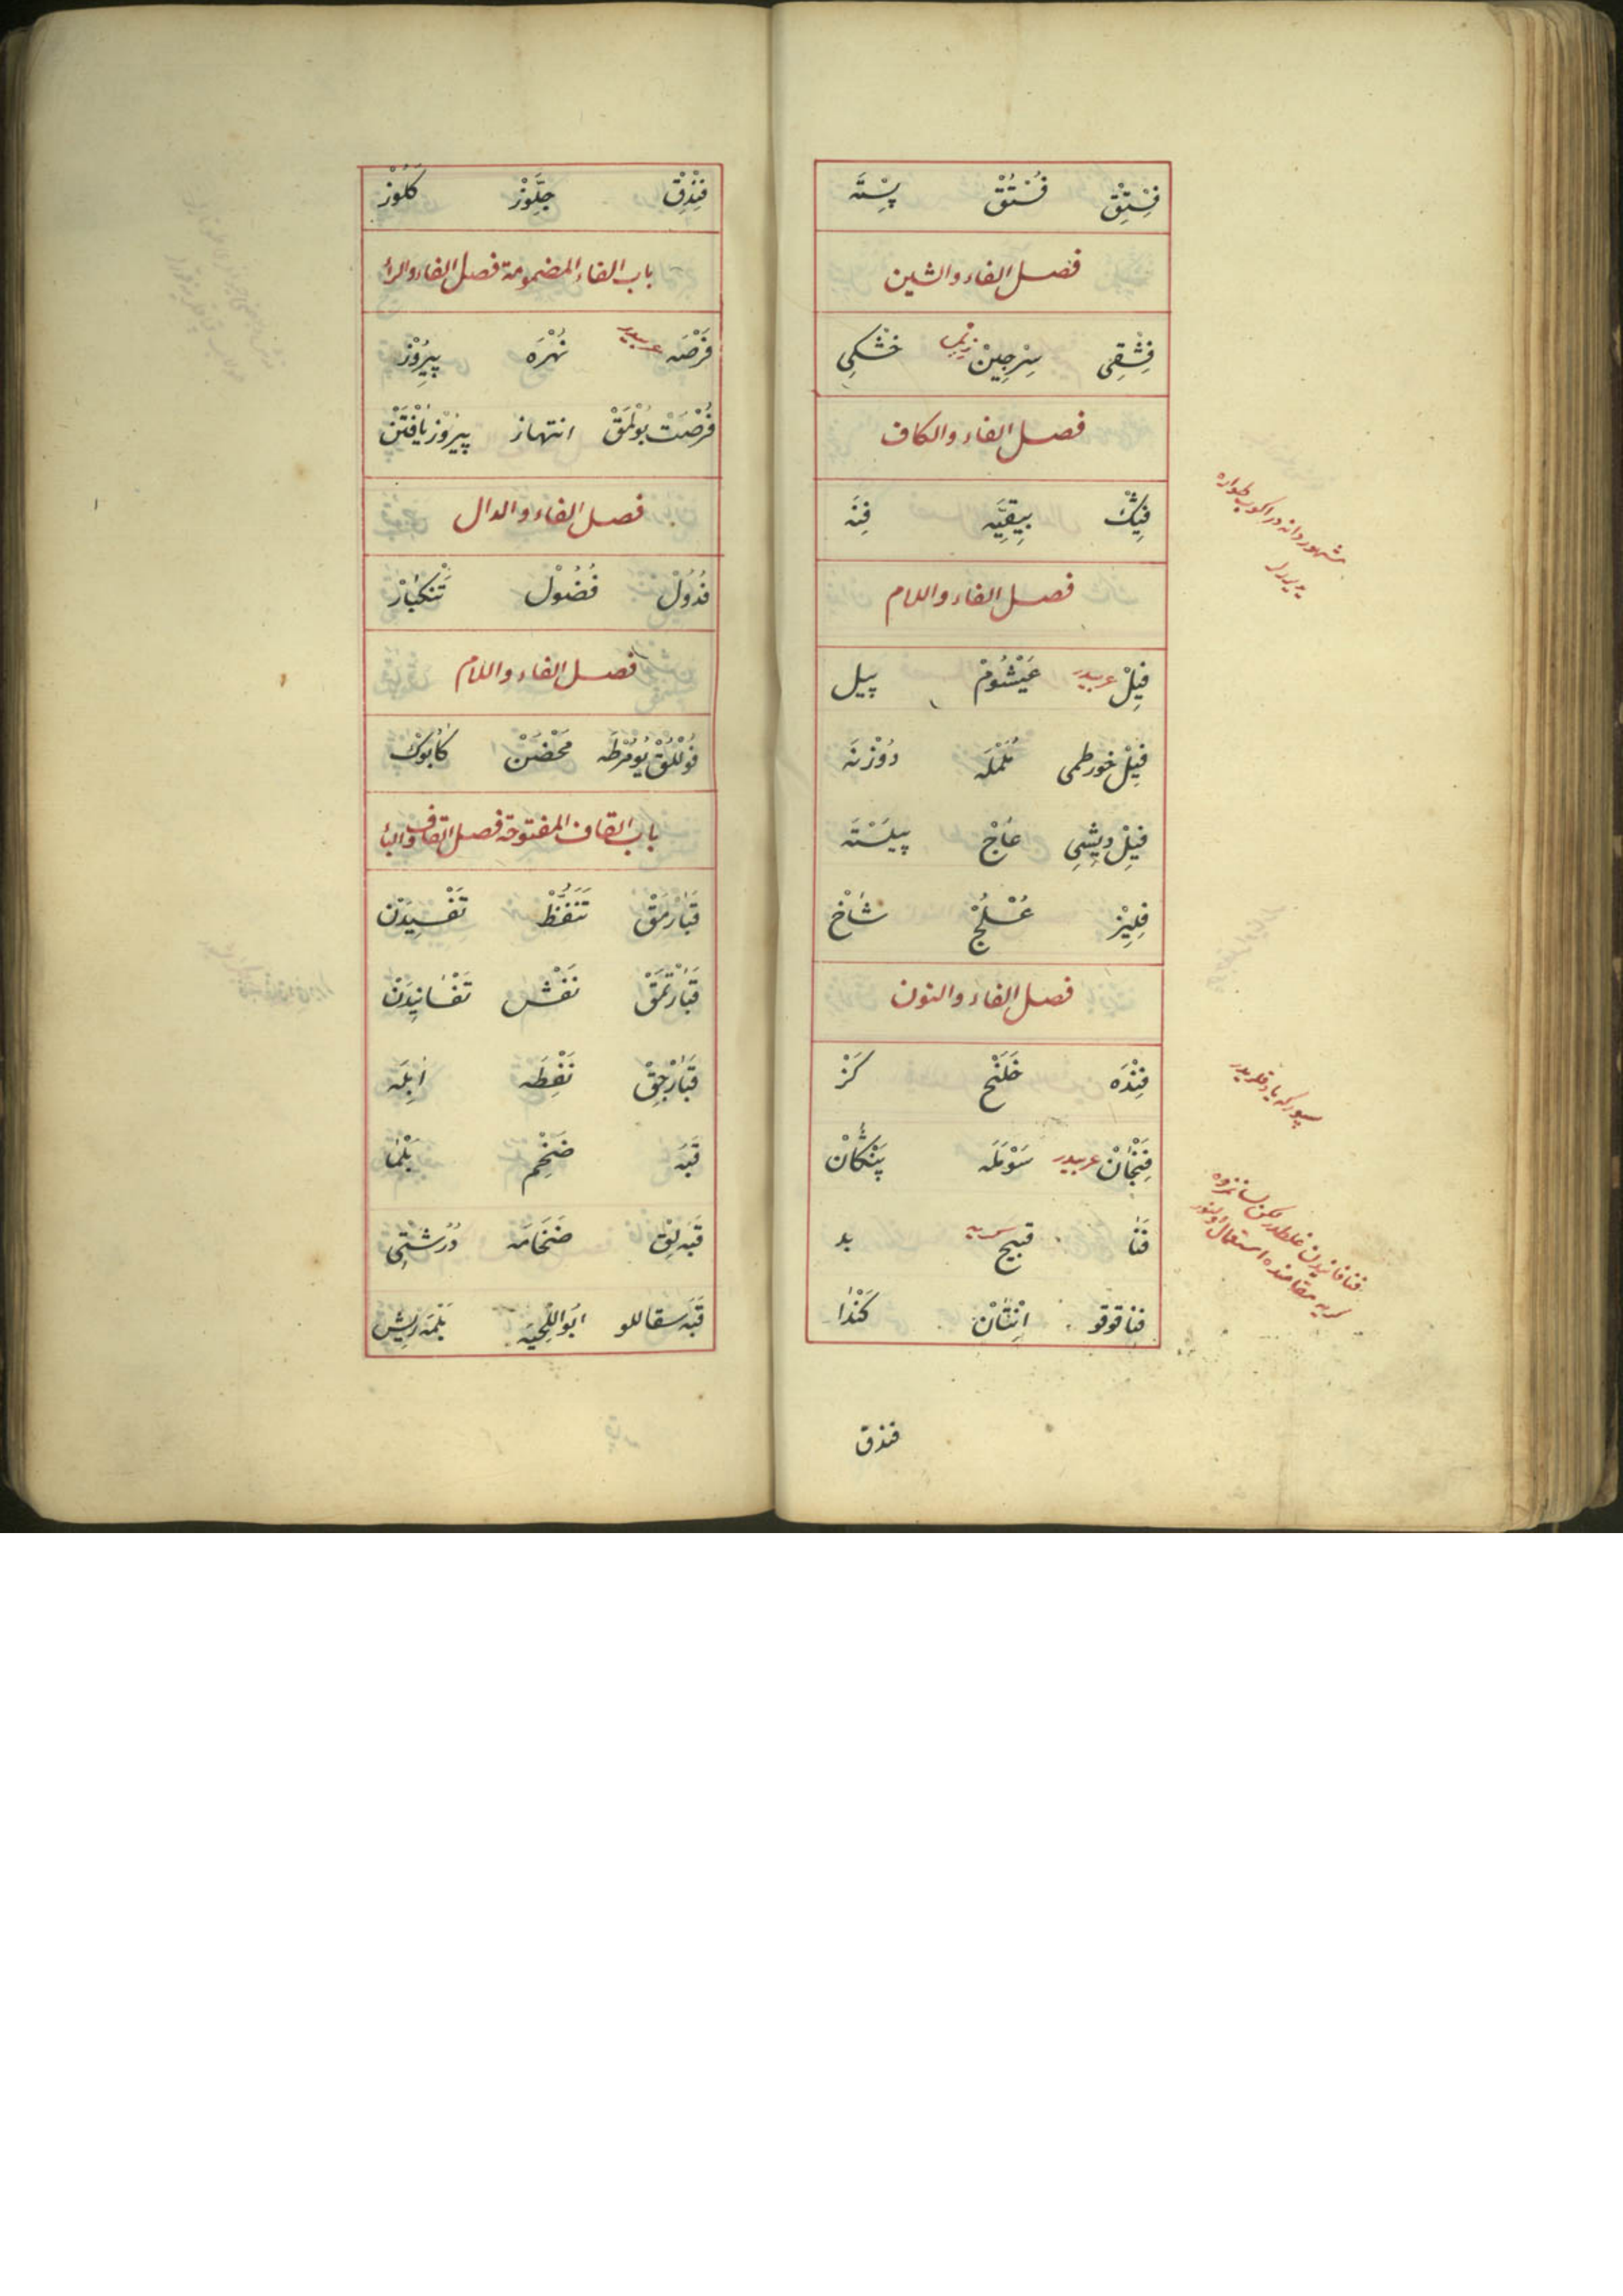 فِسْتِقْ فُسْتُقْ پِسْتَه
فصل الفاء والشين
فِشْقِى سِرْجِينْ زبل خشكى
فصل الفاء والكاف
فيك بِيقِيَه فِنَه
مشهور دانه در
فصل الفاء واللام
فِيلْ عربيدر عَيْشُومْ پيل
فِيلْ خورطمى
فِيلْ دِيشِى عَاجْ پيلَسْتَه
فِلِيزْ عُسْلُجْ شَاخْ
فصل الفاء والنون
فِنْدَه خَلَنْج كَزْ
فِنْجَانْ عربيدر سَوْمَلَه پَنْكَانْ
فَنَا قبيح كريه بد
فنا قوقو اِنْتَانْ كَنْدَا
فندق
فِنْدِقْ جِلَّوْزْ كَلُوزْ
باب الفاء المضمومة فصل الفاء والراء
فُرْصَه عربيدر نُهْزَه پيرُوز
فُرْصَتْ بُولْمَقْ انتهاز پيرُوز يَافْتَنْ
فصل الفاء والدال
فُدُولْ فُضُولْ
فصل الفاء واللام
فُولْلُقْ يُومُرْطَه مَحْضَنْ كَابُوكْ
باب القاف المفتوحة فصل القاف والباء
قَبَارْمَقْ تَنَفُّظْ تَفْسِيدَنْ
قَبَارْتْمَقْ تَفْسَانِيدَنْ
قَبَارْجِقْ نَفْطَه اَبِلَه
قَبَه ضَخْم بَلْمَا
قَبَه لِقْ ضَخَامَه دُرُشْتِى
قَبَه سقاللو اَبُو اللِّحْيَه بَلْمَه رِيشْ